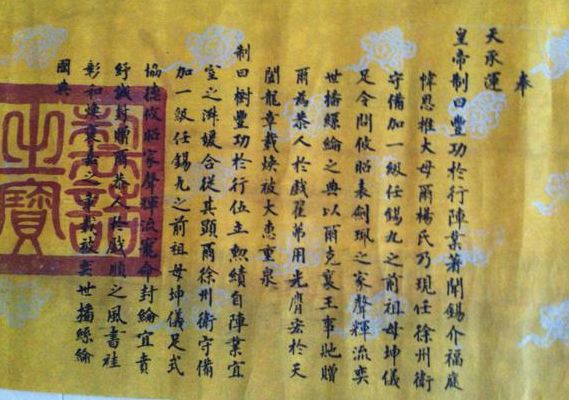 奉
天承運
皇帝制曰豐功於行陣業著閫錫介福庭
幃恩推大母爾楊氏乃現任徐州衛
守備加一級任錫九之前祖母坤儀
足令問攸昭表劍珮之家聲輝流奕
世播絲綸之典以爾克襄王事貤贈
爾為恭人於戲翟茀用光膺宏於天
閶龍章載煥被大惠重泉
制曰樹豐功於行伍主勲績自陣業宜
室之湃媛合從其顯爾徐州衛守備
加一級任錫九之前祖母坤儀足式
協德攸昭家聲輝流寵命封綸宜賁
紓誠封爾恭人於戲順之風書袿
彰和煥襃嘉之重載被奕世播絲綸
國典
制誥之寶